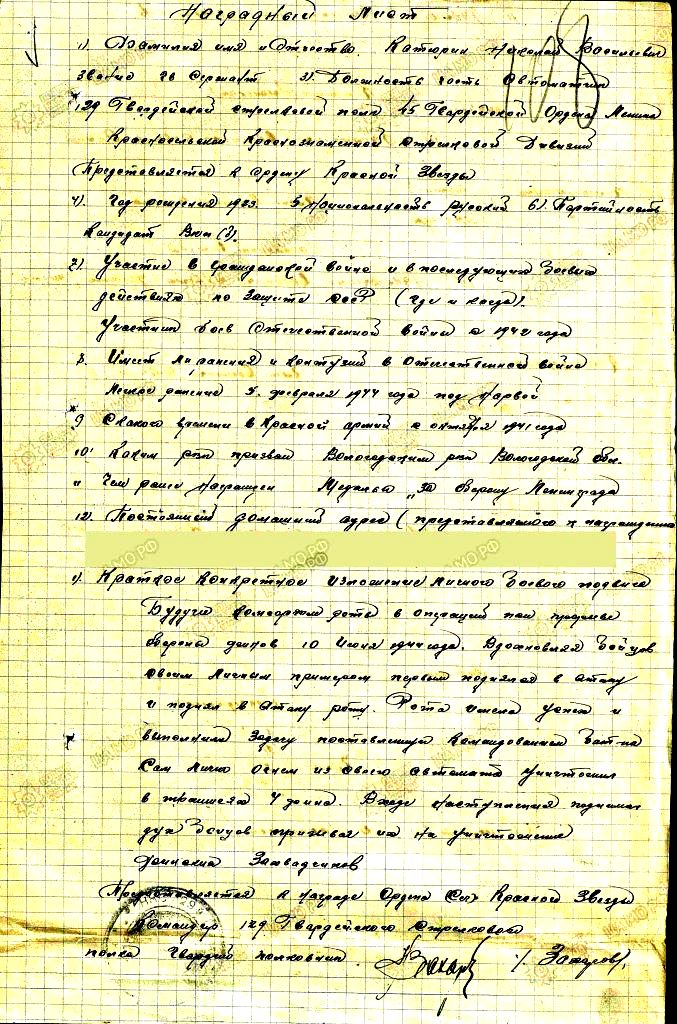 Наградный Лист.
1). Фамилия имя и Отчество. Катюрин Николай Васильевич
звание гв Сержант 3) Должность часть Автоматчик
129 Гвардейской стрелковой полк 45 Гвардейской Ордена Ленина
Красносельской Краснознаменной стрелковой Дивизии
Представляется к ордену Красной Звезды
4). Год рождения 1923. 5 Национальность русский 6) Партийность
Кандидат Вкп(б).
7). Участие в гражданской войне и в последующих боевых
действиях по защите СССР (где и когда).
Участник боев Отечественной войны с 1942 года
8. Имеет ли ранения и контузии в отечественной войне
Легкое ранение февраля 1944 года под Нарвой
9 С какого времени в Красной армии с октября 1941 года
10' Каким рвк призван Вологодским рвк Вологодской обл.
11 Чем ранее награжден Медалью „За оборону Ленинграда
12). Постоянный домашний адрес (представляемого к награждению
1). Краткое конкретное изложение личного боевого подвига
Будучи комсоргом роты в операции при прорыве
обороны финнов 10 Июня 1944 года. Вдохновляя бойцов
своим личным примером первым поднялся в атаку
и поднял в атаку роту. Рота имела успех и
выполнила задачу поставленную командованием бат-на
Сам лично огнем из своего автомата уничтожил
в траншеях 4 финна. В ходе наступления поднимал
дух бойцов призывая их на уничтожение
финских Захватчиков
Представляется к награде Ордена Красной Звезды
Командир 129 Гвардейского Стрелкового
полка Гвардии полковник / Захаров/.